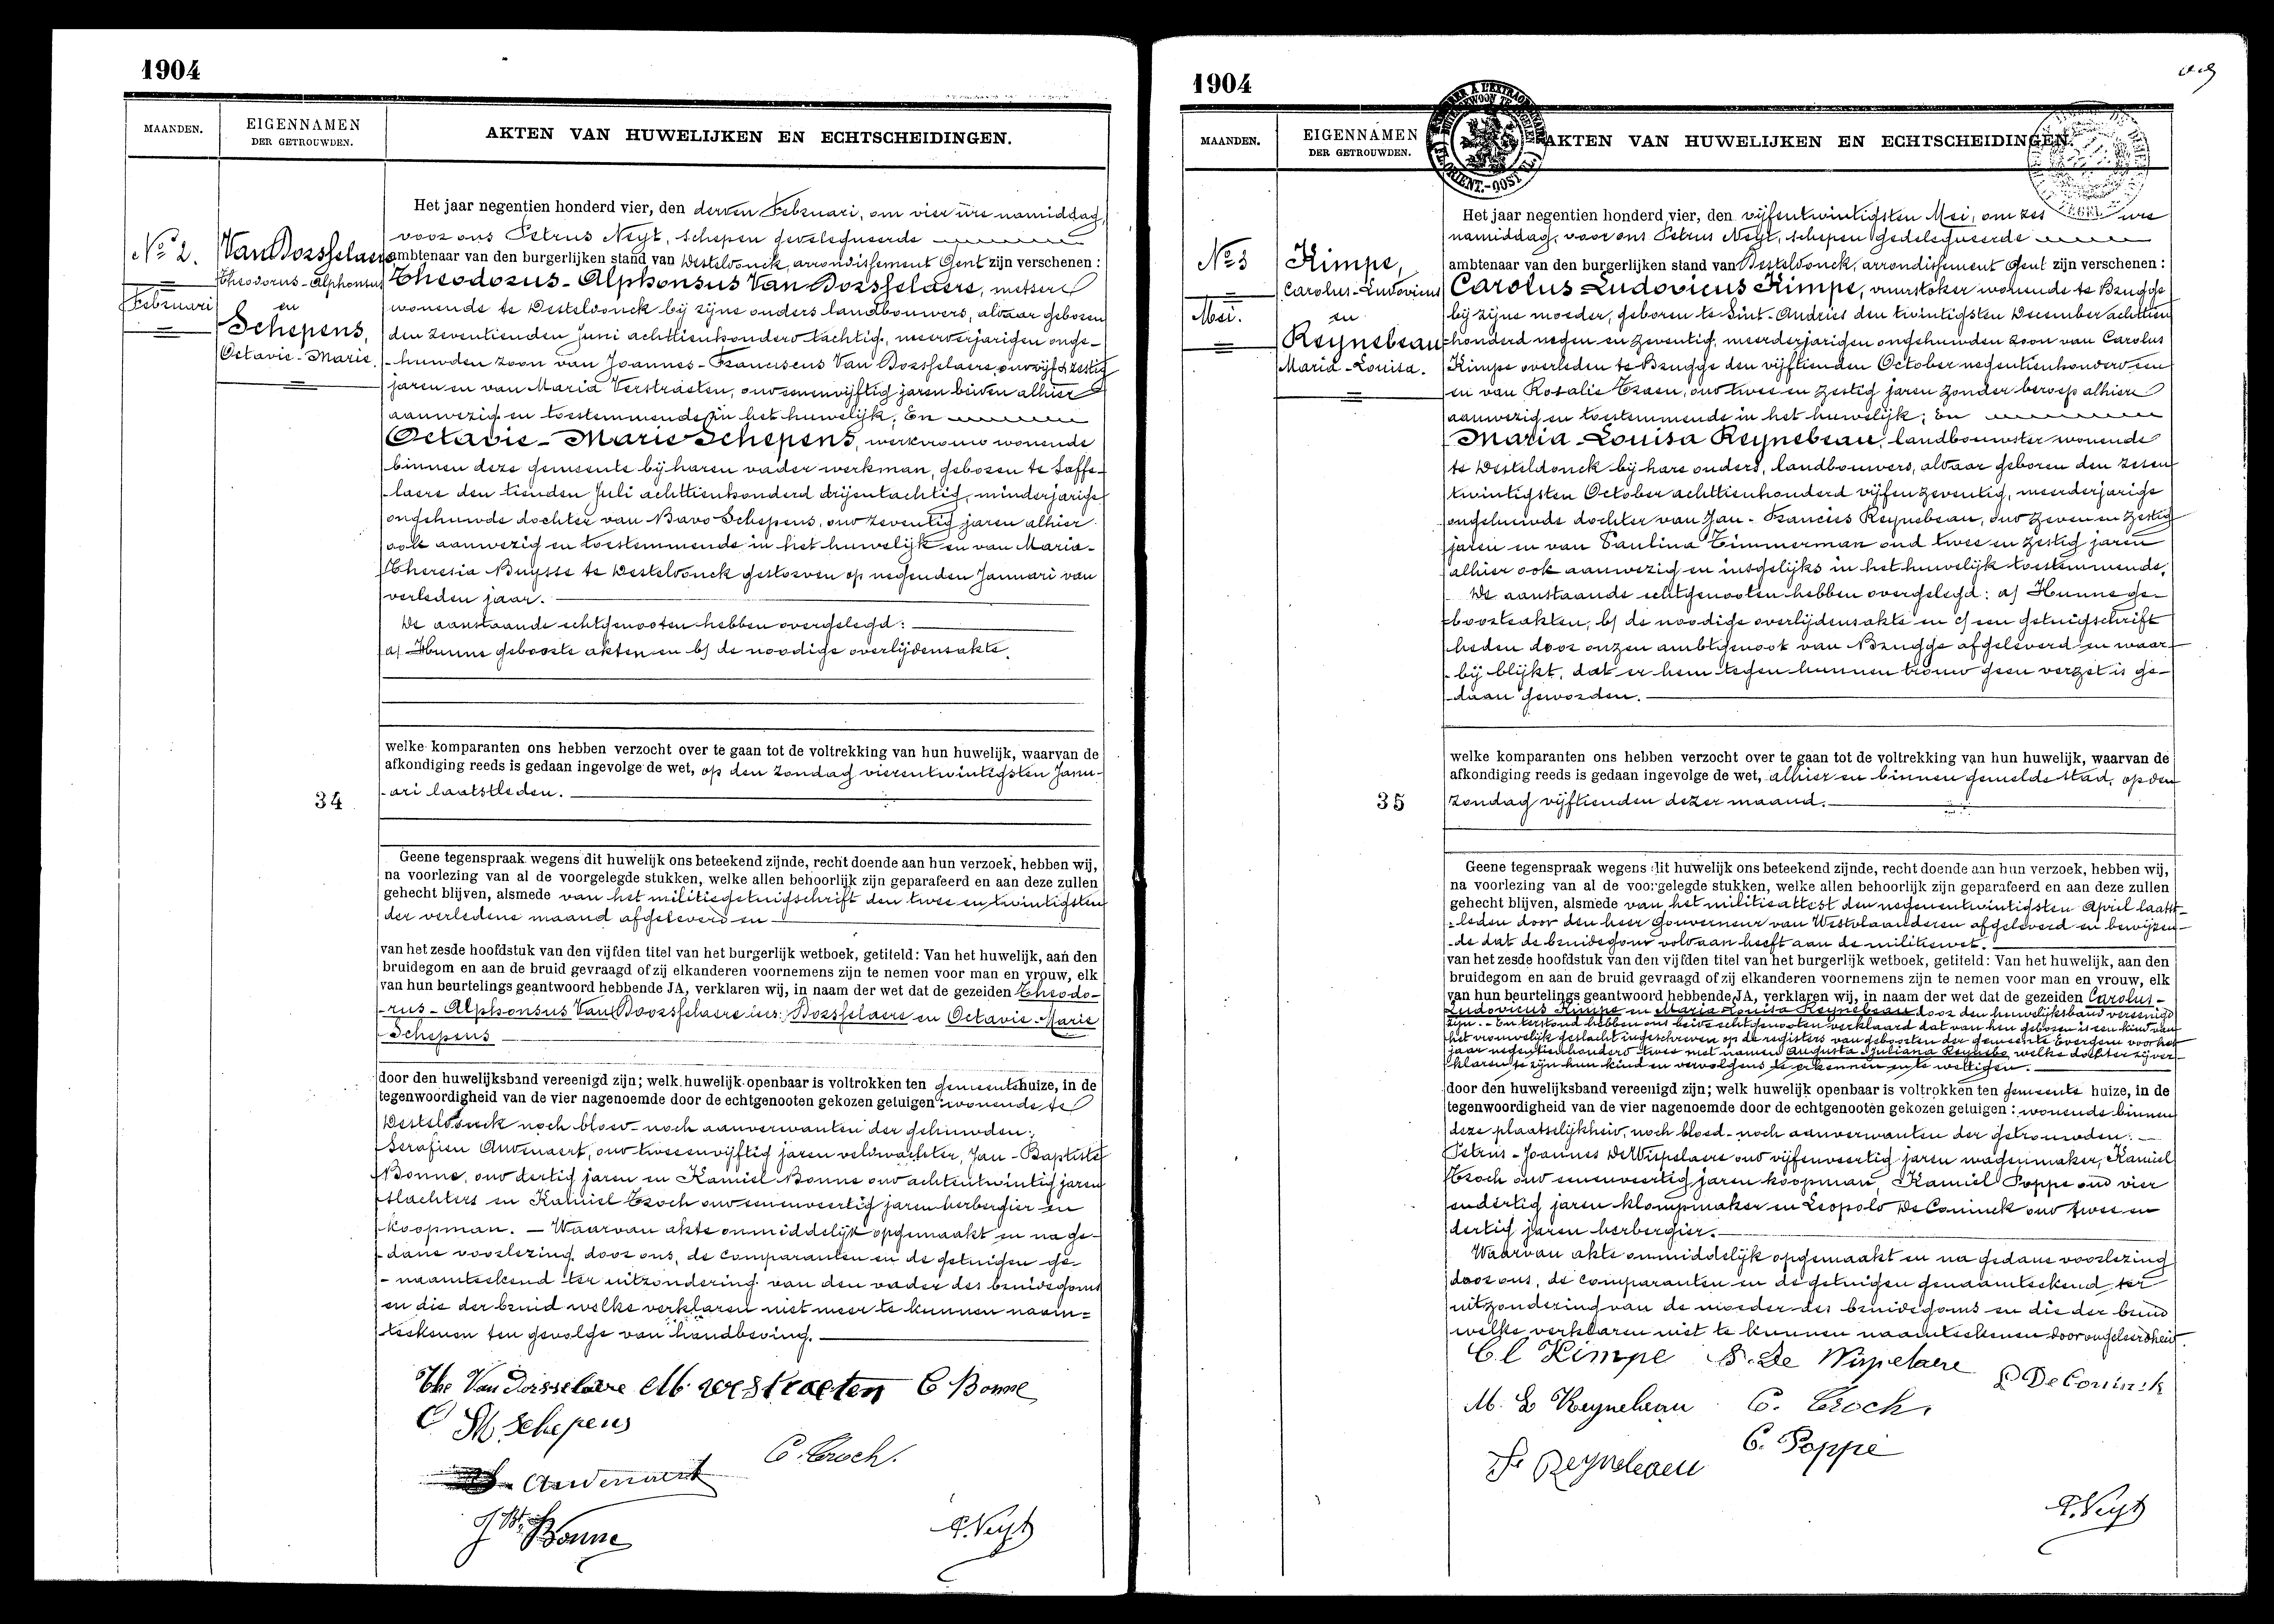 1904
MAANDEN.
EIGENNAMEN
DER GETROUWDEN.
AKTEN VAN HUWELIJKEN EN ECHTSCHEIDINGEN.
No 2.
Februari
Van Dorsselaere
Theodorus-Alphonsus
en
Schepens,
Octavie-Marie.
34
Het jaar negentien honderd vier, den derden Februari, om vier ure namiddag,
voor ons Petrus Neyt, schepen gedelegueerde
ambtenaar van den burgerlijken stand van Desteldonck, arrondissement Gent zijn verschenen :
Theodorus-Alphonsus Van Dorsselaere, metser
wonende te Desteldonck bij zijne ouders landbouwers, aldaar geboren
den zeventienden Juni achttienhonderd tachtig, meerderjarigen onge-
-huwden zoon van Joannes-Franciscus Van Dorsselaere, oud vijf & zestig
jaren en van Maria Verstraeten, oud eenenvijftig jaren beiden alhier
aanwezig en toestemmende in het huwelijk; En
Octavie-Marie Schepens, werkvrouw wonende
binnen deze gemeente bij haren vader werkman, geboren te Saffe-
-laere den tienden Juli achttienhonderd drijentachtig, minderjarige
ongehuwde dochter van Bavo Schepens, oud zeventig jaren alhier
ook aanwezig en toestemmende in het huwelijk en van Maria-
Theresia Buysse te Desteldonck gestorven op negenden Januari van
verleden jaar.
De aanstaande echtgenooten hebben overgelegd:
a/ Hunne geboorte akten en b/ de noodige overlijdensakte.
welke komparanten ons hebben verzocht over te gaan tot de voltrekking van hun huwelijk, waarvan de
afkondiging reeds is gedaan ingevolge de wet, op den zondag vierentwintigsten Janu-
-ari laatstleden.
Geene tegenspraak wegens dit huwelijk ons beteekend zijnde, recht doende aan hun verzoek, hebben wij,
na voorlezing van al de voorgelegde stukken, welke allen behoorlijk zijn geparafeerd en aan deze zullen
gehecht blijven, alsmede van het militiegetuigschrift den twee en twintigsten
der verledene maand afgeleverd en
van het zesde hoofdstuk van den vijfden titel van het burgerlijk wetboek, getiteld: Van het huwelijk, aan den
bruidegom en aan de bruid gevraagd of zij elkanderen voornemens zijn te nemen voor man en vrouw, elk
van hun beurtelings geantwoord hebbende JA, verklaren wij, in naam der wet dat de gezeiden Theodo-
-rus-Alphonsus Van Doorsselaere lees: Dorsselaere en Octavie-Marie
Schepens
door den huwelijksband vereenigd zijn; welk huwelijk openbaar is voltrokken ten gemeentehuize, in de
tegenwoordigheid van de vier nagenoemde door de echtgenooten gekozen getuigen: wonende te
Desteldonck noch bloed- noch aanverwanten der gehuwden:
Serafien Audenaert, oud tweeenvijftig jaren veldwachter, Jan-Baptiste
Bonne, oud dertig jaren en Kamiel Bonne oud achtentwintig jaren
slachters en Kamiel Croch oud eenenveertig jaren herbergier en
koopman. — Waarvan akte onmiddelijk opgemaakt en na ge-
-dane voorlezing door ons, de comparanten en de getuigen ge-
-naamteekend ter uitzondering van den vader des bruidegoms
en die der bruid welke verklaren niet meer te kunnen naam=
teekenen ten gevolge van handbeving.
The Van Dorsselaere M. verstraeten C Bonne
O M Schepens
C. Croch.
S. Audenaert
J Bt Bonne
P. Neyt
1904
MAANDEN.
EIGENNAMEN
DER GETROUWDEN.
AKTEN VAN HUWELIJKEN EN ECHTSCHEIDINGEN.
No 3
Mei.
Kimpe,
Carolus-Ludovicus
en
Reynebeau
Maria-Louisa.
35
Het jaar negentien honderd vier, den vijfentwintigsten Mei, om zes ure
namiddag, voor ons Petrus Neyt, schepen gedelegueerde
ambtenaar van den burgerlijken stand van Desteldonck, arrondissement Gent zijn verschenen :
Carolus-Ludovicus Kimpe, vuurstoker wonende te Brugge
bij zijne moeder, geboren te Sint-Andries den twintigsten December achttien
=honderd negen en zeventig, meerderjarigen ongehuwden zoon van Carolus
Kimpe overleden te Brugge den vijftienden October negentienhonderd een
en van Rosalie Traen, oud twee en zestig jaren zonder beroep alhier
aanwezig en toestemmende in het huwelijk; En
Maria-Louisa Reynebeau, landbouwster wonende
te Desteldonck bij hare ouders, landbouwers, aldaar geboren den zesen
twintigsten October achttienhonderd vijfenzeventig, meerderjarige
ongehuwde dochter van Jan-Francies Reynebeau, oud zeven en zestig
jaren en van Paulina Timmerman oud twee en zestig jaren
alhier ook aanwezig en insgelijks in het huwelijk toestemmende.
De aanstaande echtgenooten hebben overgelegd: a/ Hunne ge-
boorteakten, b/ de noodige overlijdensakte en c/ een getuigschrift
heden door onzen ambtgenoot van Brugge afgeleverd en waar-
-bij blijkt, dat er hem tegen hunnen trouw geen verzet is ge-
-daan geworden.
welke komparanten ons hebben verzocht over te gaan tot de voltrekking van hun huwelijk, waarvan de
afkondiging reeds is gedaan ingevolge de wet, alhier en binnen gemelde stad, op den
zondag vijftienden dezer maand.
Geene tegenspraak wegens dit huwelijk ons beteekend zijnde, recht doende aan hun verzoek, hebben wij,
na voorlezing van al de voorgelegde stukken, welke allen behoorlijk zijn geparafeerd en aan deze zullen
gehecht blijven, alsmede van het militieattest den negenentwintigsten April laatst-
-leden door den heer Gouverneur van Westvlaanderen afgeleverd en bewijzen-
-de dat de bruidegom voldaan heeft aan de militiewet.
van het zesde hoofdstuk van den vijfden titel van het burgerlijk wetboek, getiteld: Van het huwelijk, aan den
bruidegom en aan de bruid gevraagd of zij elkanderen voornemens zijn te nemen voor man en vrouw, elk
van hun beurtelings geantwoord hebbende JA, verklaren wij, in naam der wet dat de gezeiden Carolus-
Ludovicus Kimpe en Maria Louisa Reynebeau door den huwelijksband vereenigd
zijn. - En terstond hebben ons beide echtgenooten verklaard dat van hen geboren is een kind van
het vrouwelijk geslacht ingeschreven op de registers van geboorten der gemeente Evergem voor het
jaar negentienhonderd twee met namen Augusta Juliana Reynebo, welke dochter zij ver-
klaren te zijn hun kind en vervolgens te erkennen en te wettigen.
door den huwelijksband vereenigd zijn; welk huwelijk openbaar is voltrokken ten gemeente huize, in de
tegenwoordigheid van de vier nagenoemde door de echtgenooten gekozen getuigen : wonende binnen
deze plaatselijkheid, noch bloed- noch aanverwanten der getrouwden:
Petrus-Joannes De Wispelaere oud vijfenveertig jaren wagenmaker, Kamiel
Croch oud eenenveertig jaren koopman, Kamiel Poppe oud vier
endertig jaren klompmaker en Leopold De Coninck oud twee en
dertig jaren herbergier.
Waarvan akte onmiddelijk opgemaakt en na gedane voorlezing
door ons, de comparanten en de getuigen genaamteekend ter
uitzondering van de moeder des bruidegoms en die der bruid
welke verklaren niet te kunnen naamteekenen door ongeleerdheid.
C L Kimpe P. De Wispelaere
L De Coninck
M. L Reynebeau C. Croch.
C. Poppe
F Reynebeau
P. Neyt